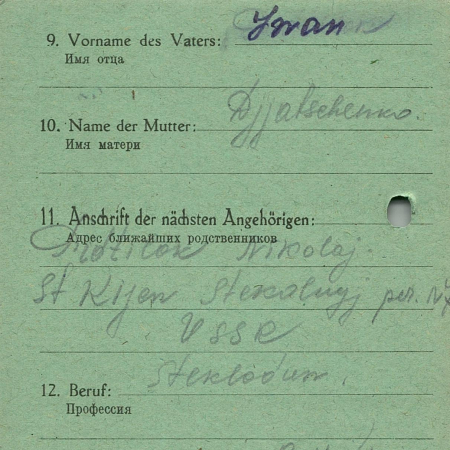 9. Vorname des Vaters: Iwan
Имя отца
Djatschenko.
10. Name der Mutter:
Имя матери
11. Anschrift der nächsten Angehörigen:
Адрес ближайших родственников
Nikolaj.
St Kijew per. N
USSR
12. Beruf:
Профессия